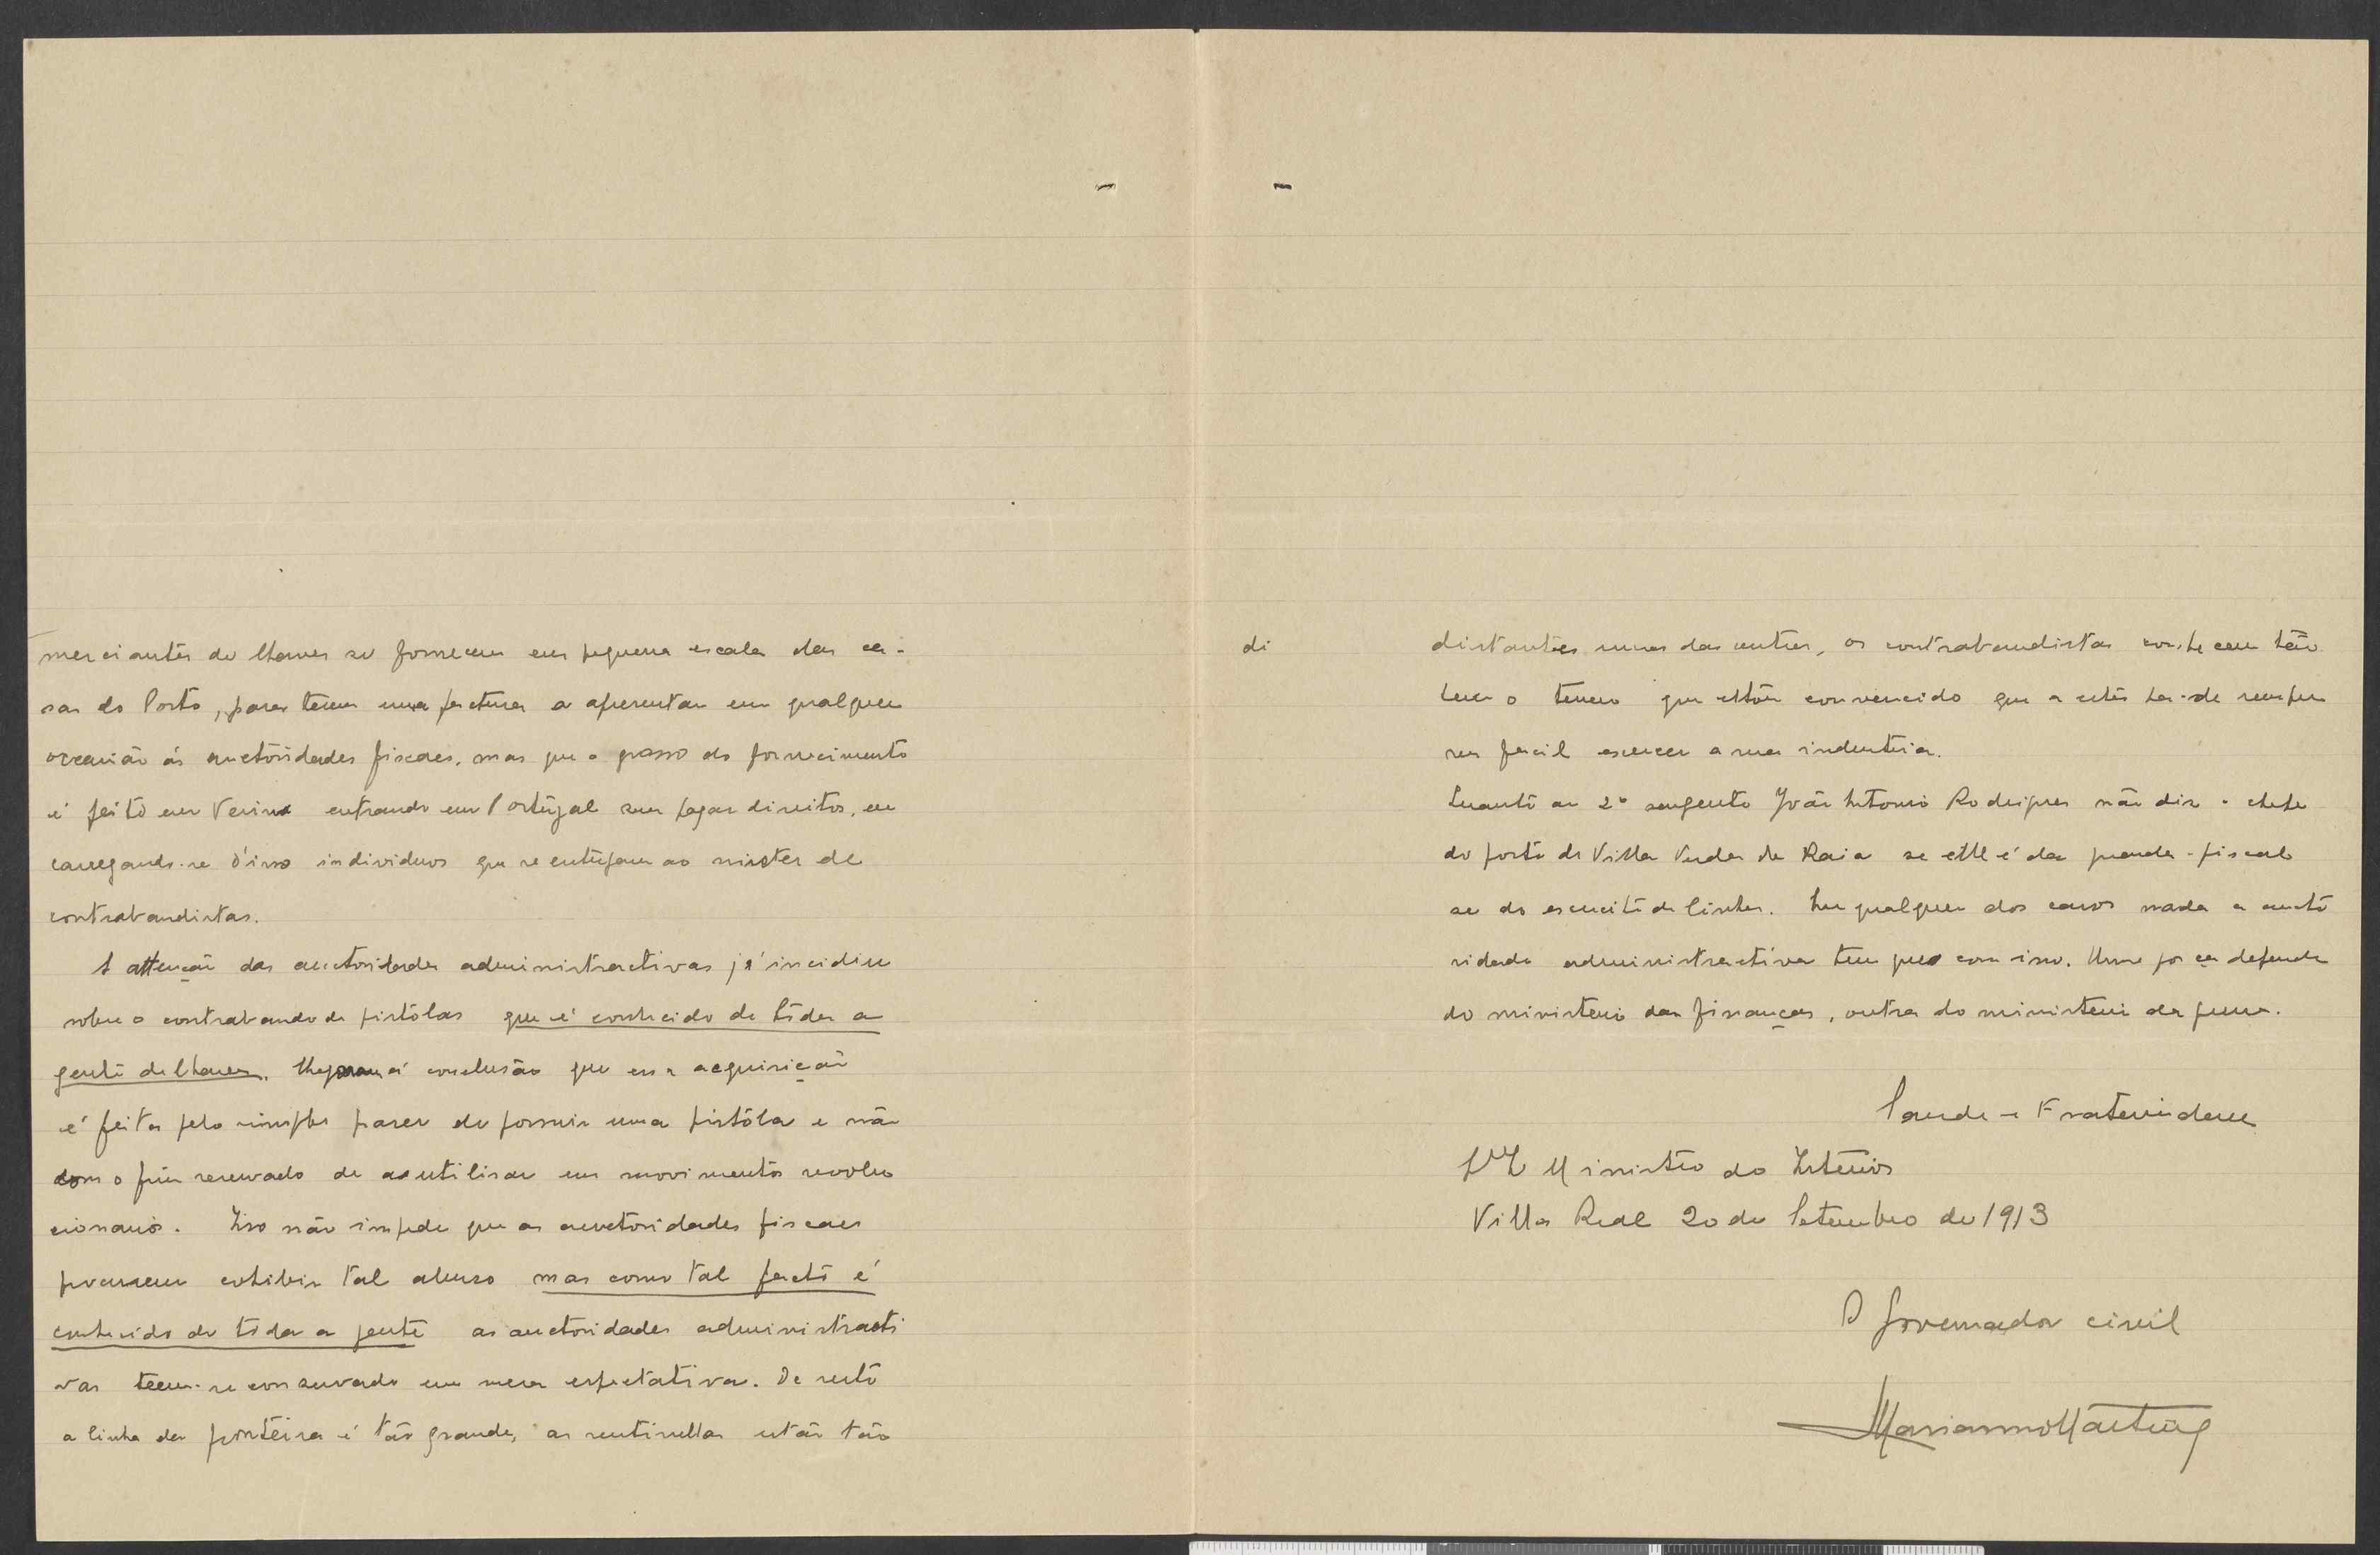 merciantes de Chaves se fornecem em pequena escala das ca-
sas do Porto, para terem uma factura a apresentar em qualquer
occasião ás auctoridades fiscaes, mas que o grosso do fornecimento
é feito em Verin entrando em Portugal sem pagar direitos, en
carregando-se d'isso individuos que se entregam ao mister de
contrabandistas.
A attenção das auctoridades administractivas já incidiu
sobre o contrabando de pistólas que é conhecido de toda a
gente de Chaves. Chegaram á conclusão que essa acquisição
é feita pelo simples prazer de possuir uma pistóla e não
com o fim reservado de as utilisar em movimento revolu
cionario. Isso não impede que as auctoridades fiscaes
procurem cohibir tal abuso mas como tal facto é
conhecido de toda a gente as auctoridades administracti
vas teem-se conservado em mera espectativa. De resto
a linha da fronteira é tão grande, as sentinellas estão tão
di
distantes umas das outras, os contrabandistas conhecem tão
bem o terreno que estou convencido que a estes ha-de sempre
ser facil exercer a sua industria.
Quanto ao 2º sargento João Antonio Rodrigues não diz o chefe
do posto de Villa Verde da Raia se elle é da guarda-fiscal
se do exercito de linha. Em qualquer dos casos nada a aucto
ridade administractiva tem que com isso. Uma força depende
do ministerio das finanças, outra do ministerio da guerra.
Saude e Fraternidade
Ministro do Interior
Villa Real 20 de Setembro de 1913
O Governador civil
Marianno Martins